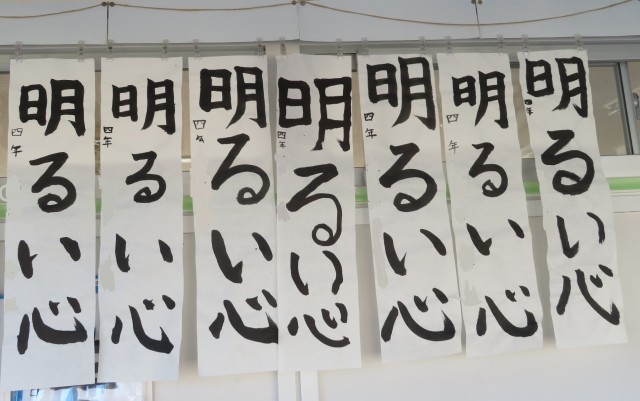 明るい心
四年
明るい心
四年
明るい心
四年
明るい心
四年
明るい心
四年
明るい心
四年
明るい心
四年